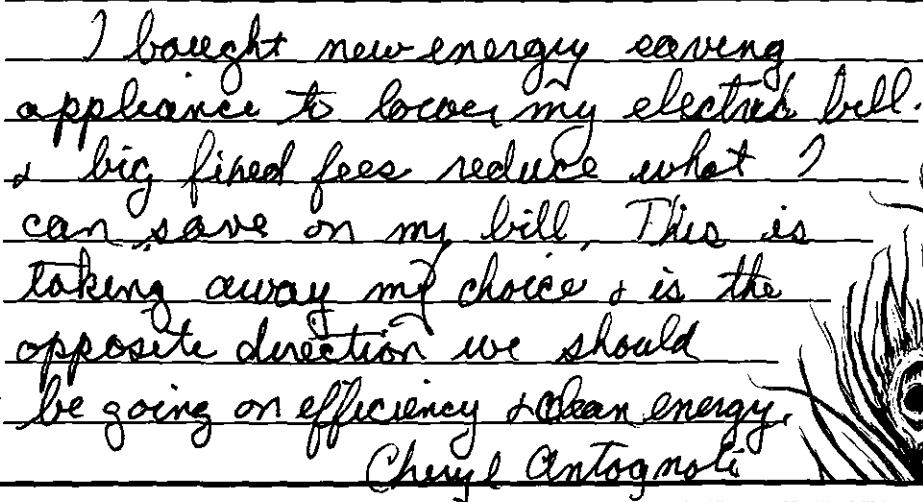 I bought new energy saving
appliance to lower my electric bill.
& big fixed fees reduce what I
can save on my bill. This is
taking away my choice & is the
opposite direction we should
be going on efficiency & clean energy.
Cheryl Antognoli